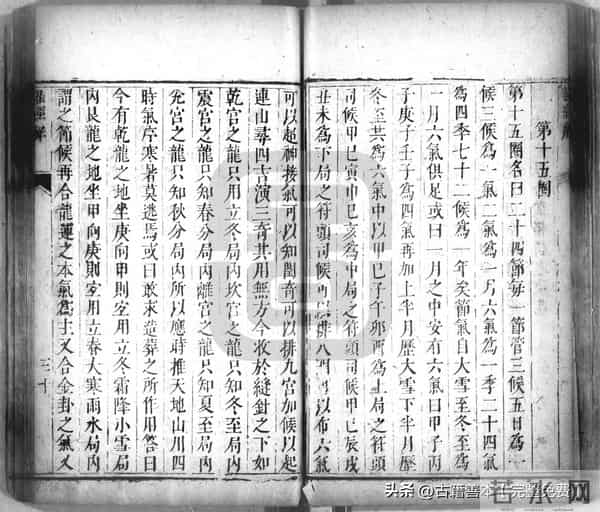 第十五圈
第十五圈名曰二十四節每一節管三候五日為一
候三候為一氣二氣為一月六氣為一季二十四氣
為四季七十二候為一年矣節氣自大雪至冬至為
一月六氣俱足或曰一月之中安有六氣曰甲子丙
子庚子壬子為四氣再加上半月歷大雪下半月歷
冬至共為六氣中以甲巳子午卯酉為上局之符頭
司候甲巳寅申巳亥為中局之符頭司候甲巳辰戌
丑未為下局之符頭司候可以排八門可以布六氣
可以起神接氣可以知闇奇可以排九宮加候以起
連山尋四吉演三奇其用無方今收於縫針之下如
乾宮之龍只用立冬局內坎宮之龍只知冬至局內
震宮之龍只知春分局內離宮之龍只知夏至局內
兌宮之龍只知秋分局內所以應時推天地山川四
時氣序寒暑莫逃焉或曰敢求造葬之所作用答曰
今有乾龍之地坐庚向甲則宜用立冬霜降小雪局
內艮龍之地坐甲向庚則宜用立春大寒雨水局內
謂之節候再合龍運之本氣為主又合金卦之氣又
三十
古籍善本
頭条 @古籍善本(完整免费)